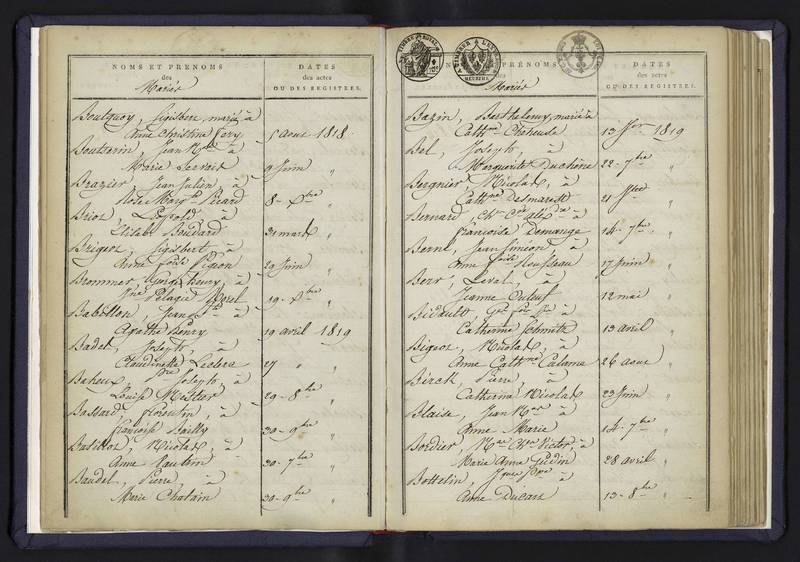 NOMS ET PRÉNOMS
des
Mariés
DATES
des actes
OU DES REGISTRES.
Boulquoy, Sigisbere, mariés à
Anne Christine Fery 5 aout 1818
Boutserin, Jean N.as à
Marie Servais 9 Juin "
Brazier, Jean Julien, à
Rose Marg.te Picard 8 - Xbre "
Briot, Léopold, à
Elisab. Boudard 31 mars "
Brigeot, Sigisbert, à
Anne foise Pigeon 29 Juin "
Brommer, George henry, à
Jne Pelagie Morel 19 - Xbre "
Babillon, Jean Bte à
Agathe henry 19 avril 1819
Badel, Joseph, à
Claudinette Leclerc 27 " "
Baheux, Joseph, à
Louise Mestier 29 - 8bre "
Bassard, florentin, à
françoise Bailly 30 - 9bre "
Batillot, Nicolas, à
Anne Gaubin 30 - 7bre "
Baudel, Pierre, à
Marie Chatain 30 - 9bre "
NOMS ET PRÉNOMS
des
Mariés
DATES
des actes
OU DES REGISTRES.
TIMBRE ROYAL
Bazin, Barthelemy, mariés à
Cathne Choheuse 13 Jer 1819
Bel, Joseph, à
Marguerite Duchêne 22 - 7bre "
Bergnier, Nicolas, à
Cathne Desmarest 21
Bernard, à
françoise Demange 14 - 7bre "
Berne, Jean Siméon à
Anne foise Rousseau 17 Juin "
Berr, Leval, à
Jeanne Duteuf 12 mai "
Bicault, à
Catherine Schmitt 13 avril "
Bigeot, Nicolas, à
Anne Cathne Calame 26 aout "
Bérah, Pierre, à
Catherine Nicolas 23 Juin "
Blaise, Jean N.as à
Anne Marie 14 - 7bre "
Bordier, N.as Chs Victor, à
Marie Anne Guédin 28 avril "
Bottelin, à
Anne Ducas 13 - 8bre "